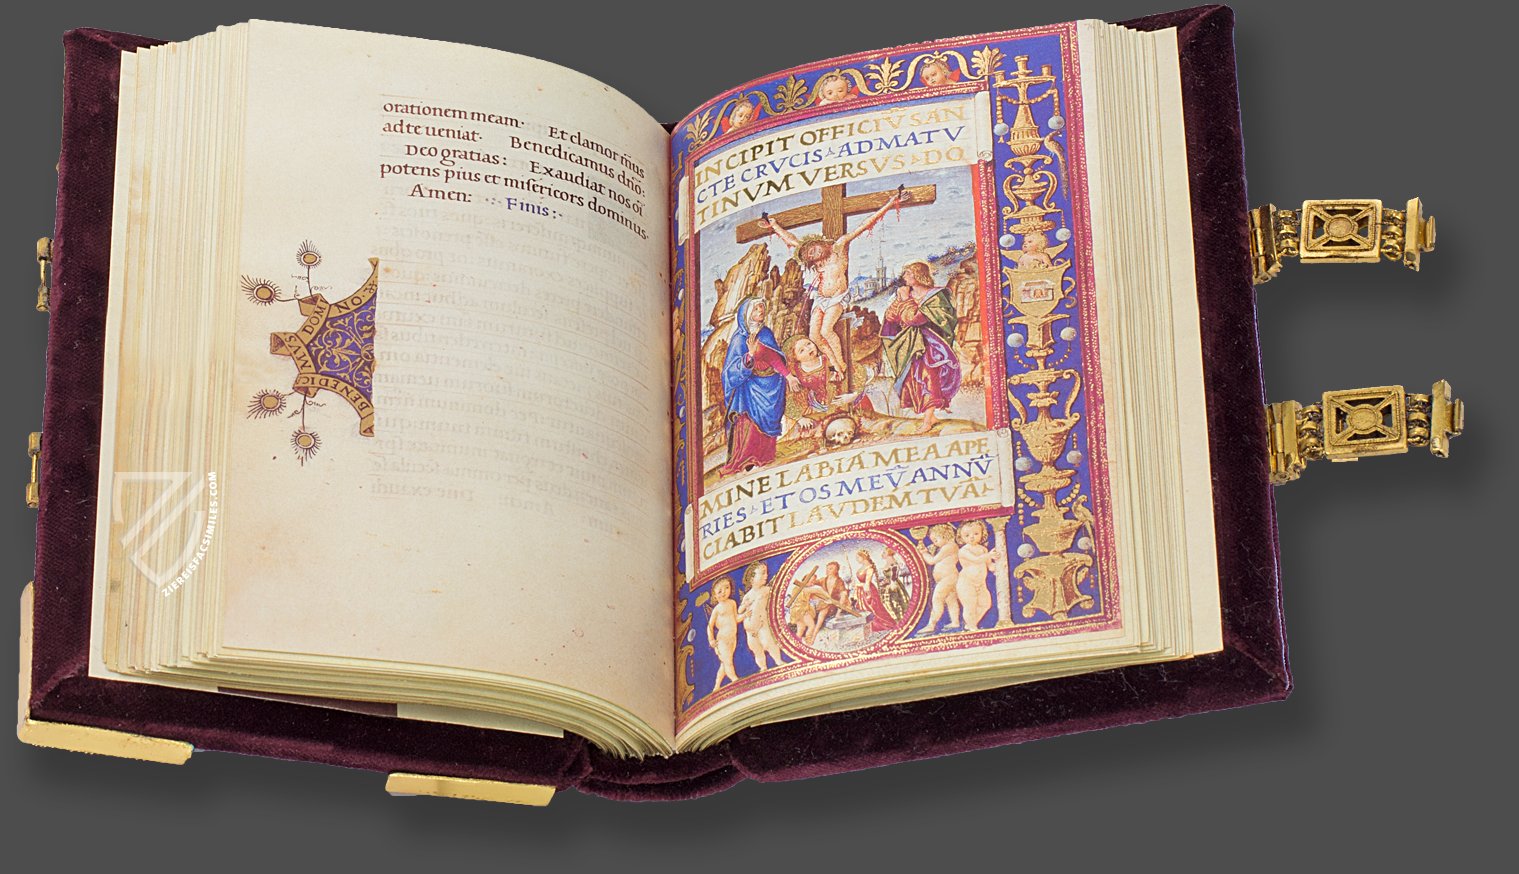 orationem meam· Et clamor m̄us
ad te ueniat· Benedicamus dn̄o:
Deo gratias: Exaudiat nos oı̄
potens pius et misericors dominus·
Amen: ·:· Finis:·
BENEDIC
AMVS DOM
NO·
INCIPIT OFFICIV̄ SAN
CTE CRVCIS·AD MATV
TINVM VERSVS·DO
MINE LABIA MEA APE
RIES·ET OS MEV̄ ANNV̄
CIABIT LAVDEM TVĀ·
ZIEREISFACSIMILES.COM